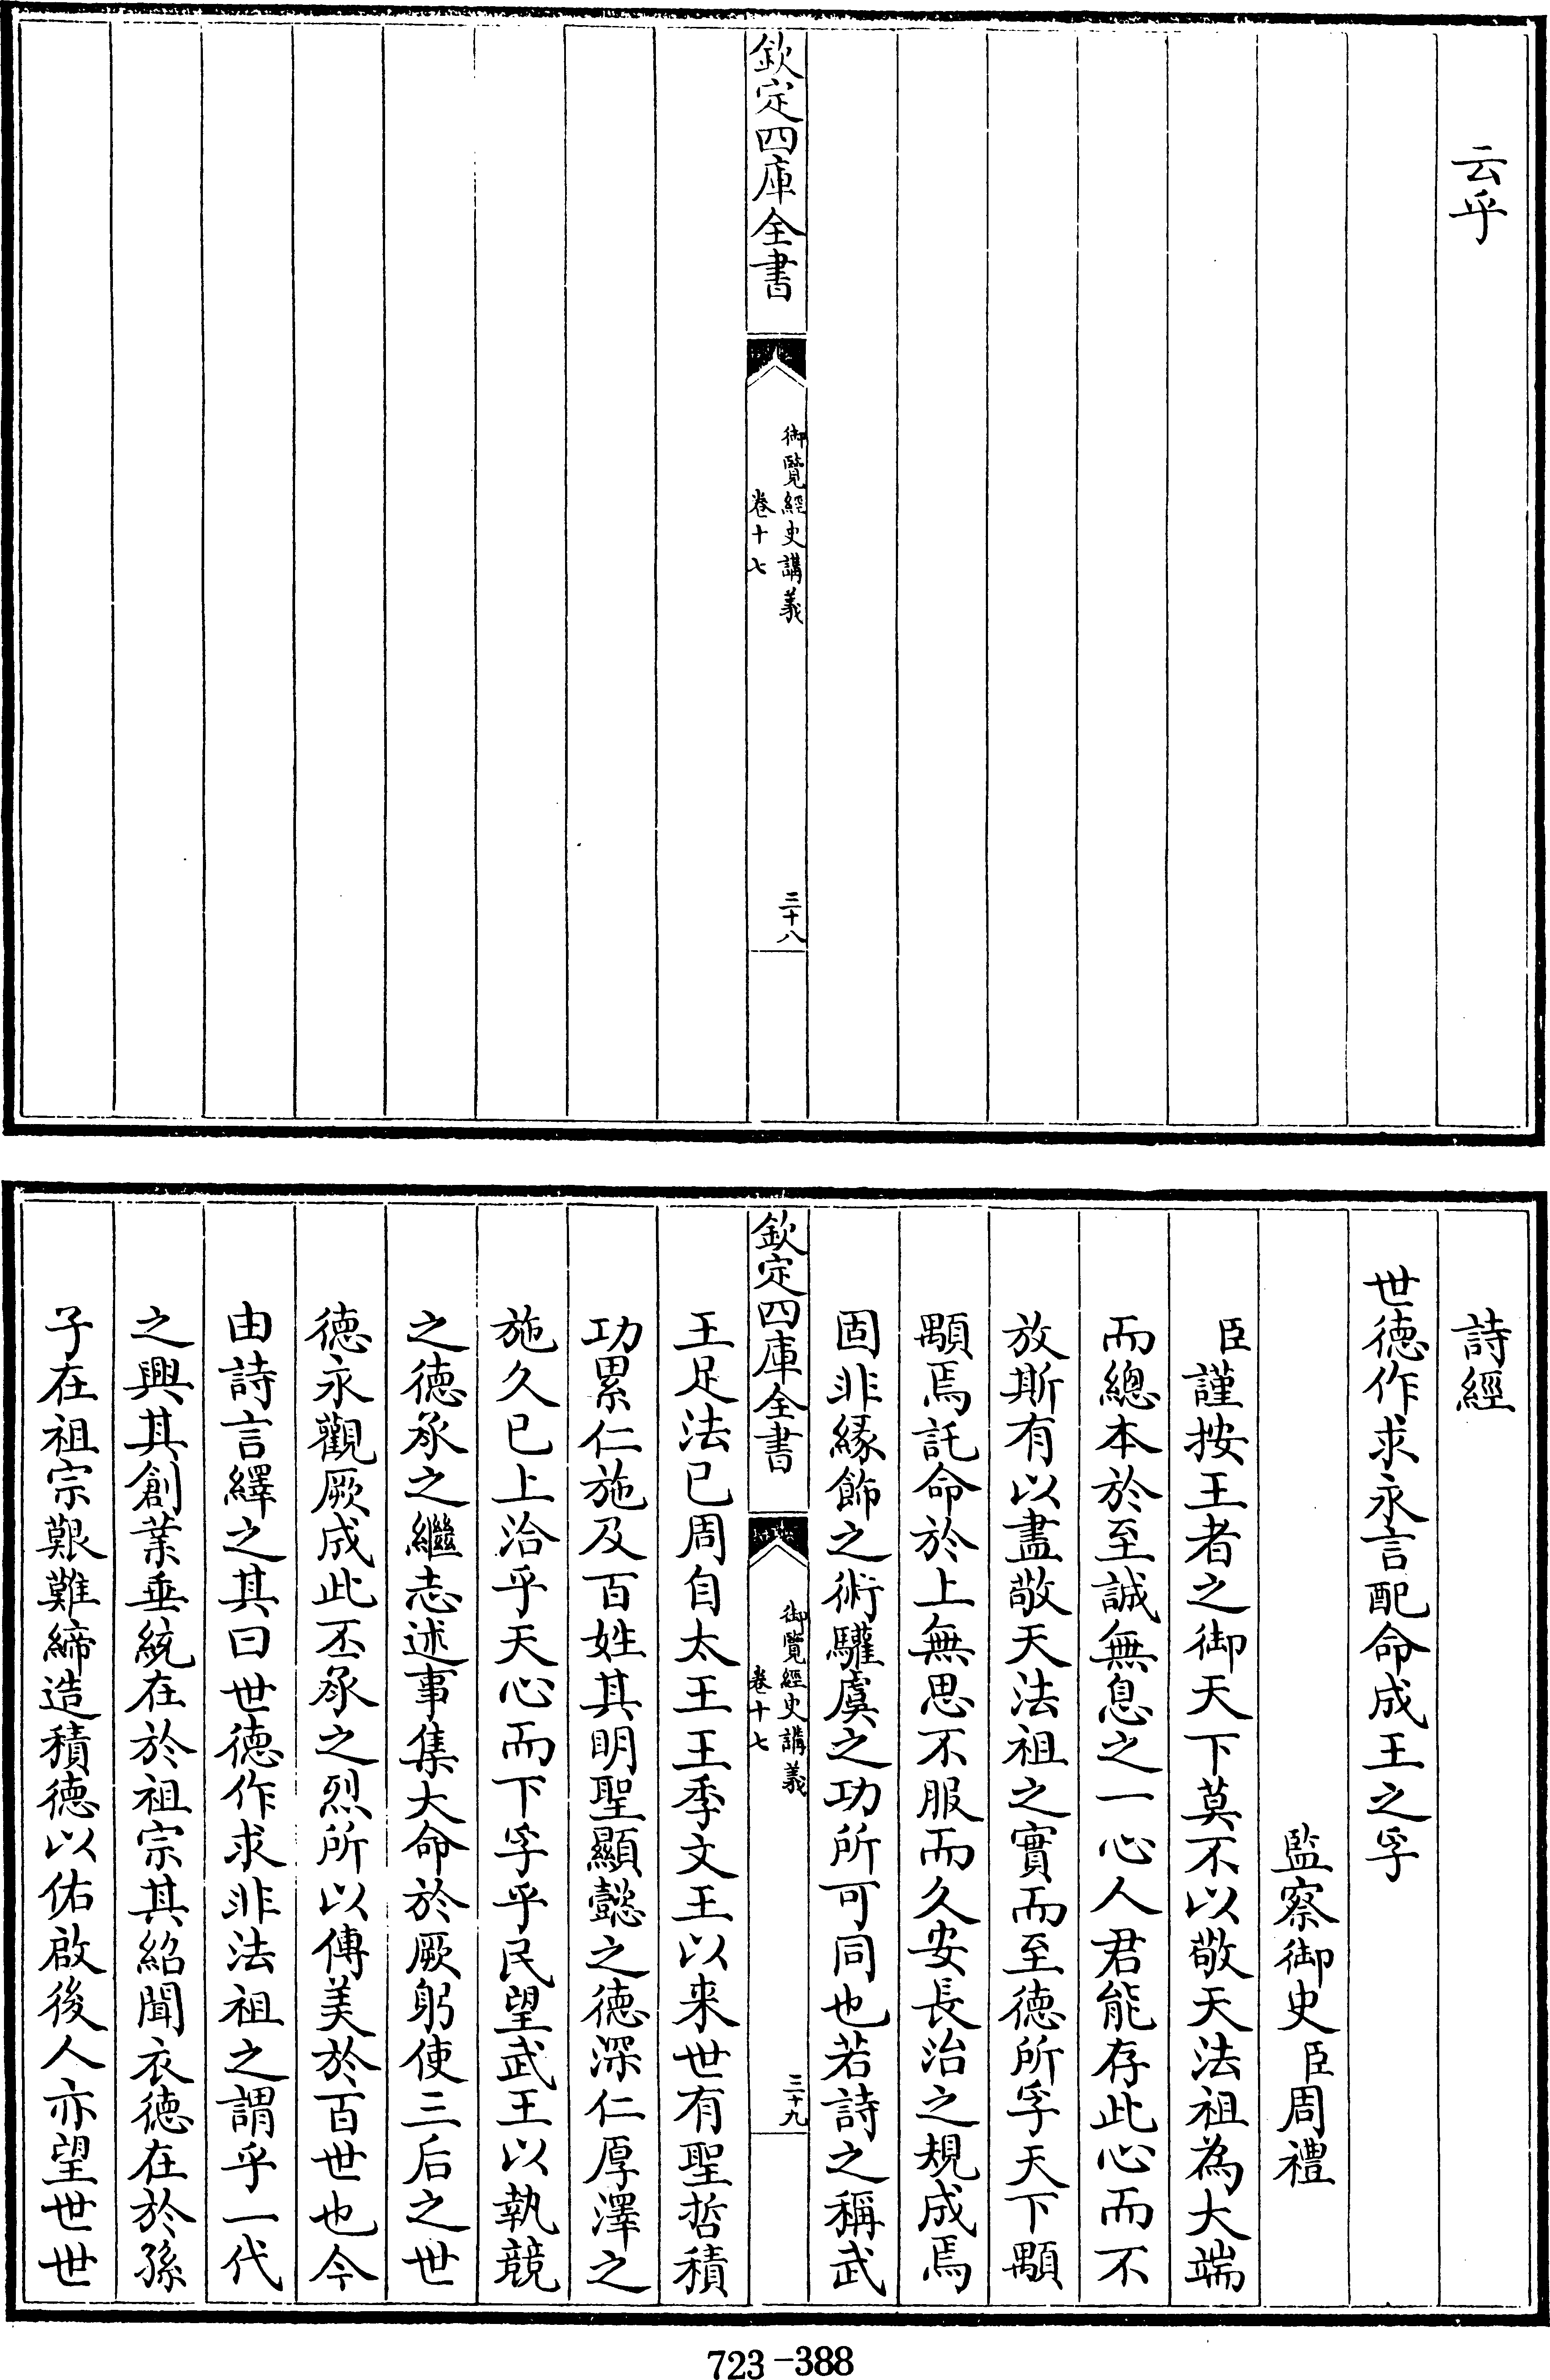 云乎
欽定四庫全書
御覽經史講義
卷十七
三十八
詩經
世德作求永言配命成王之孚
監察御史臣周禮
臣謹按王者之御天下莫不以敬天法祖為大端
而總本於至誠無息之一心人君能存此心而不
放斯有以盡敬天法祖之實而至德所孚天下顒
顒焉託命於上無思不服而久安長治之規成焉
固非緣飾之術驩虞之功所可同也若詩之稱武
欽定四庫全書
御覽經史講義
卷十七
三十九
王足法已周自太王王季文王以來世有聖哲積
功累仁施及百姓其明聖顯懿之德深仁厚澤之
施久已上洽乎天心而下孚乎民望武王以執競
之德承之繼志述事集大命於厥躬使三后之世
德永觀厥成此丕承之烈所以傳美於百世也今
由詩言繹之其曰世德作求非法祖之謂乎一代
之興其創業垂統在於祖宗其紹聞衣德在於孫
子在祖宗艱難締造積德以佑啟後人亦望世世
723-388